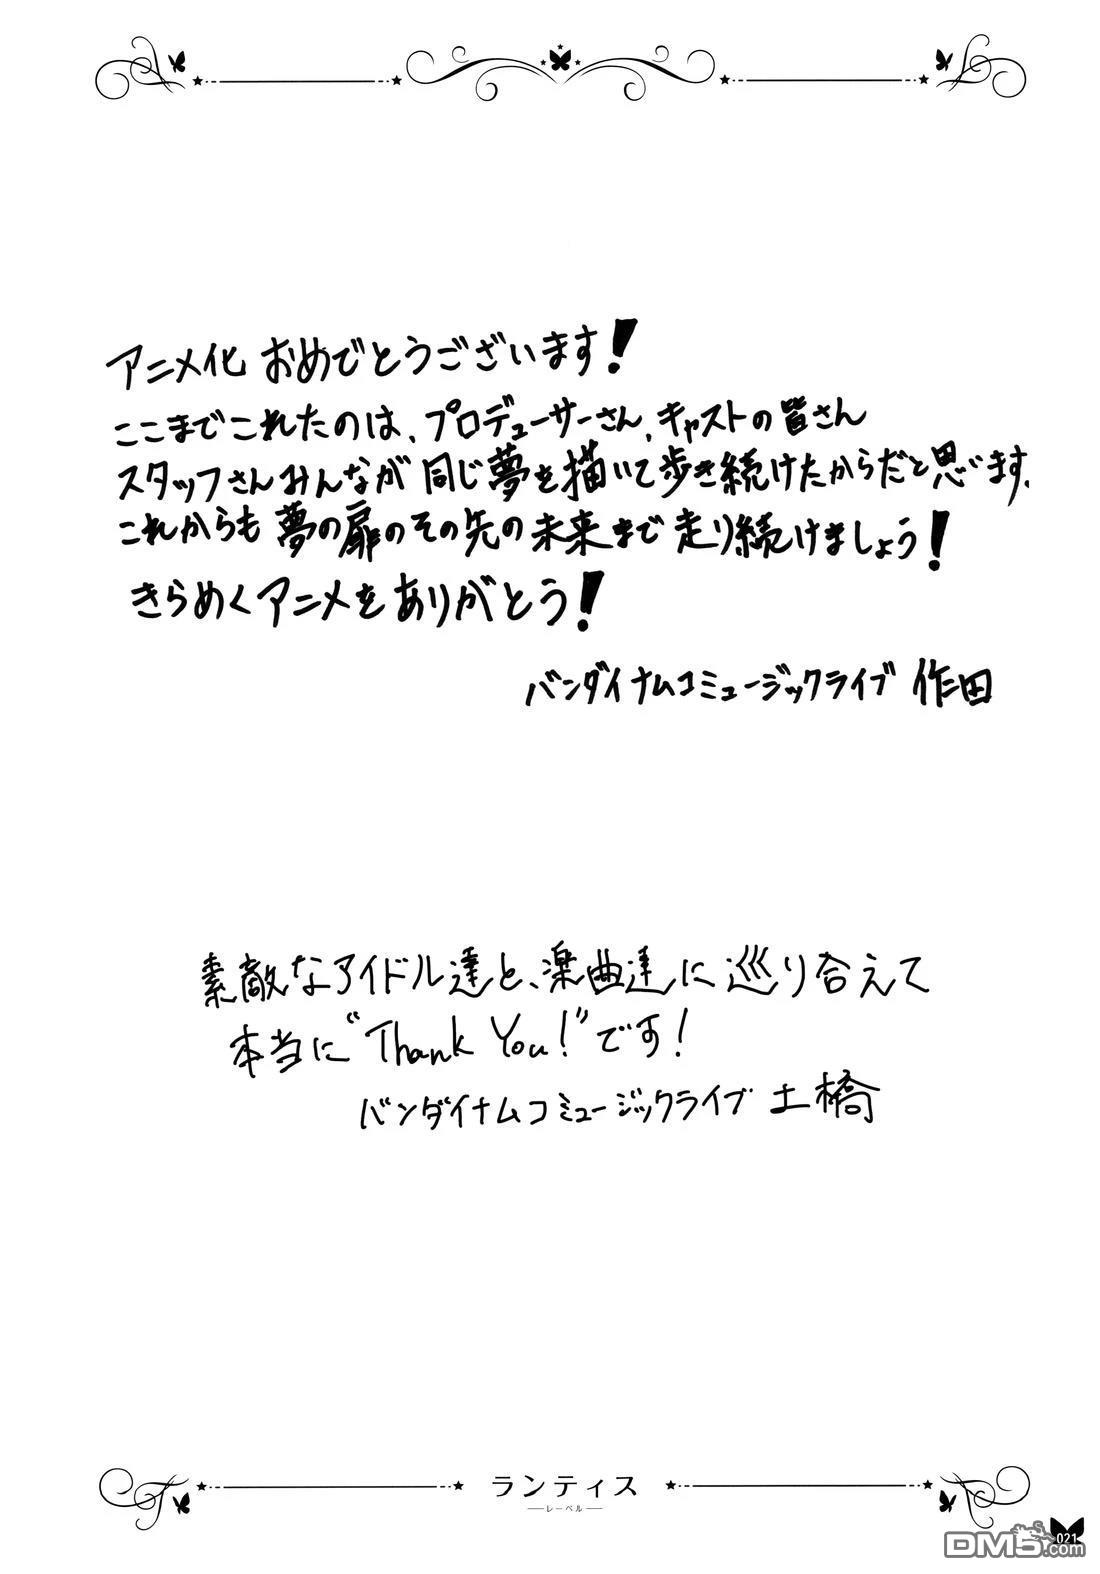 アニメ化 おめでとうございます!
ここまでこれたのは、プロデューサーさん、キャストの皆さん
スタッフさんみんなが同じ夢を描いて歩き続けたからだと思います、
これからも夢の扉のその先の未来まで走り続けましょう!
きらめくアニメをありがとう!
バンダイナムコミュージックライブ 作田
素敵なアイドル達と、楽曲達に巡り合えて
本当に"Thank You!"です!
バンダイナムコミュージックライブ 土橋
ランティス
レーベル
021
DM5.com